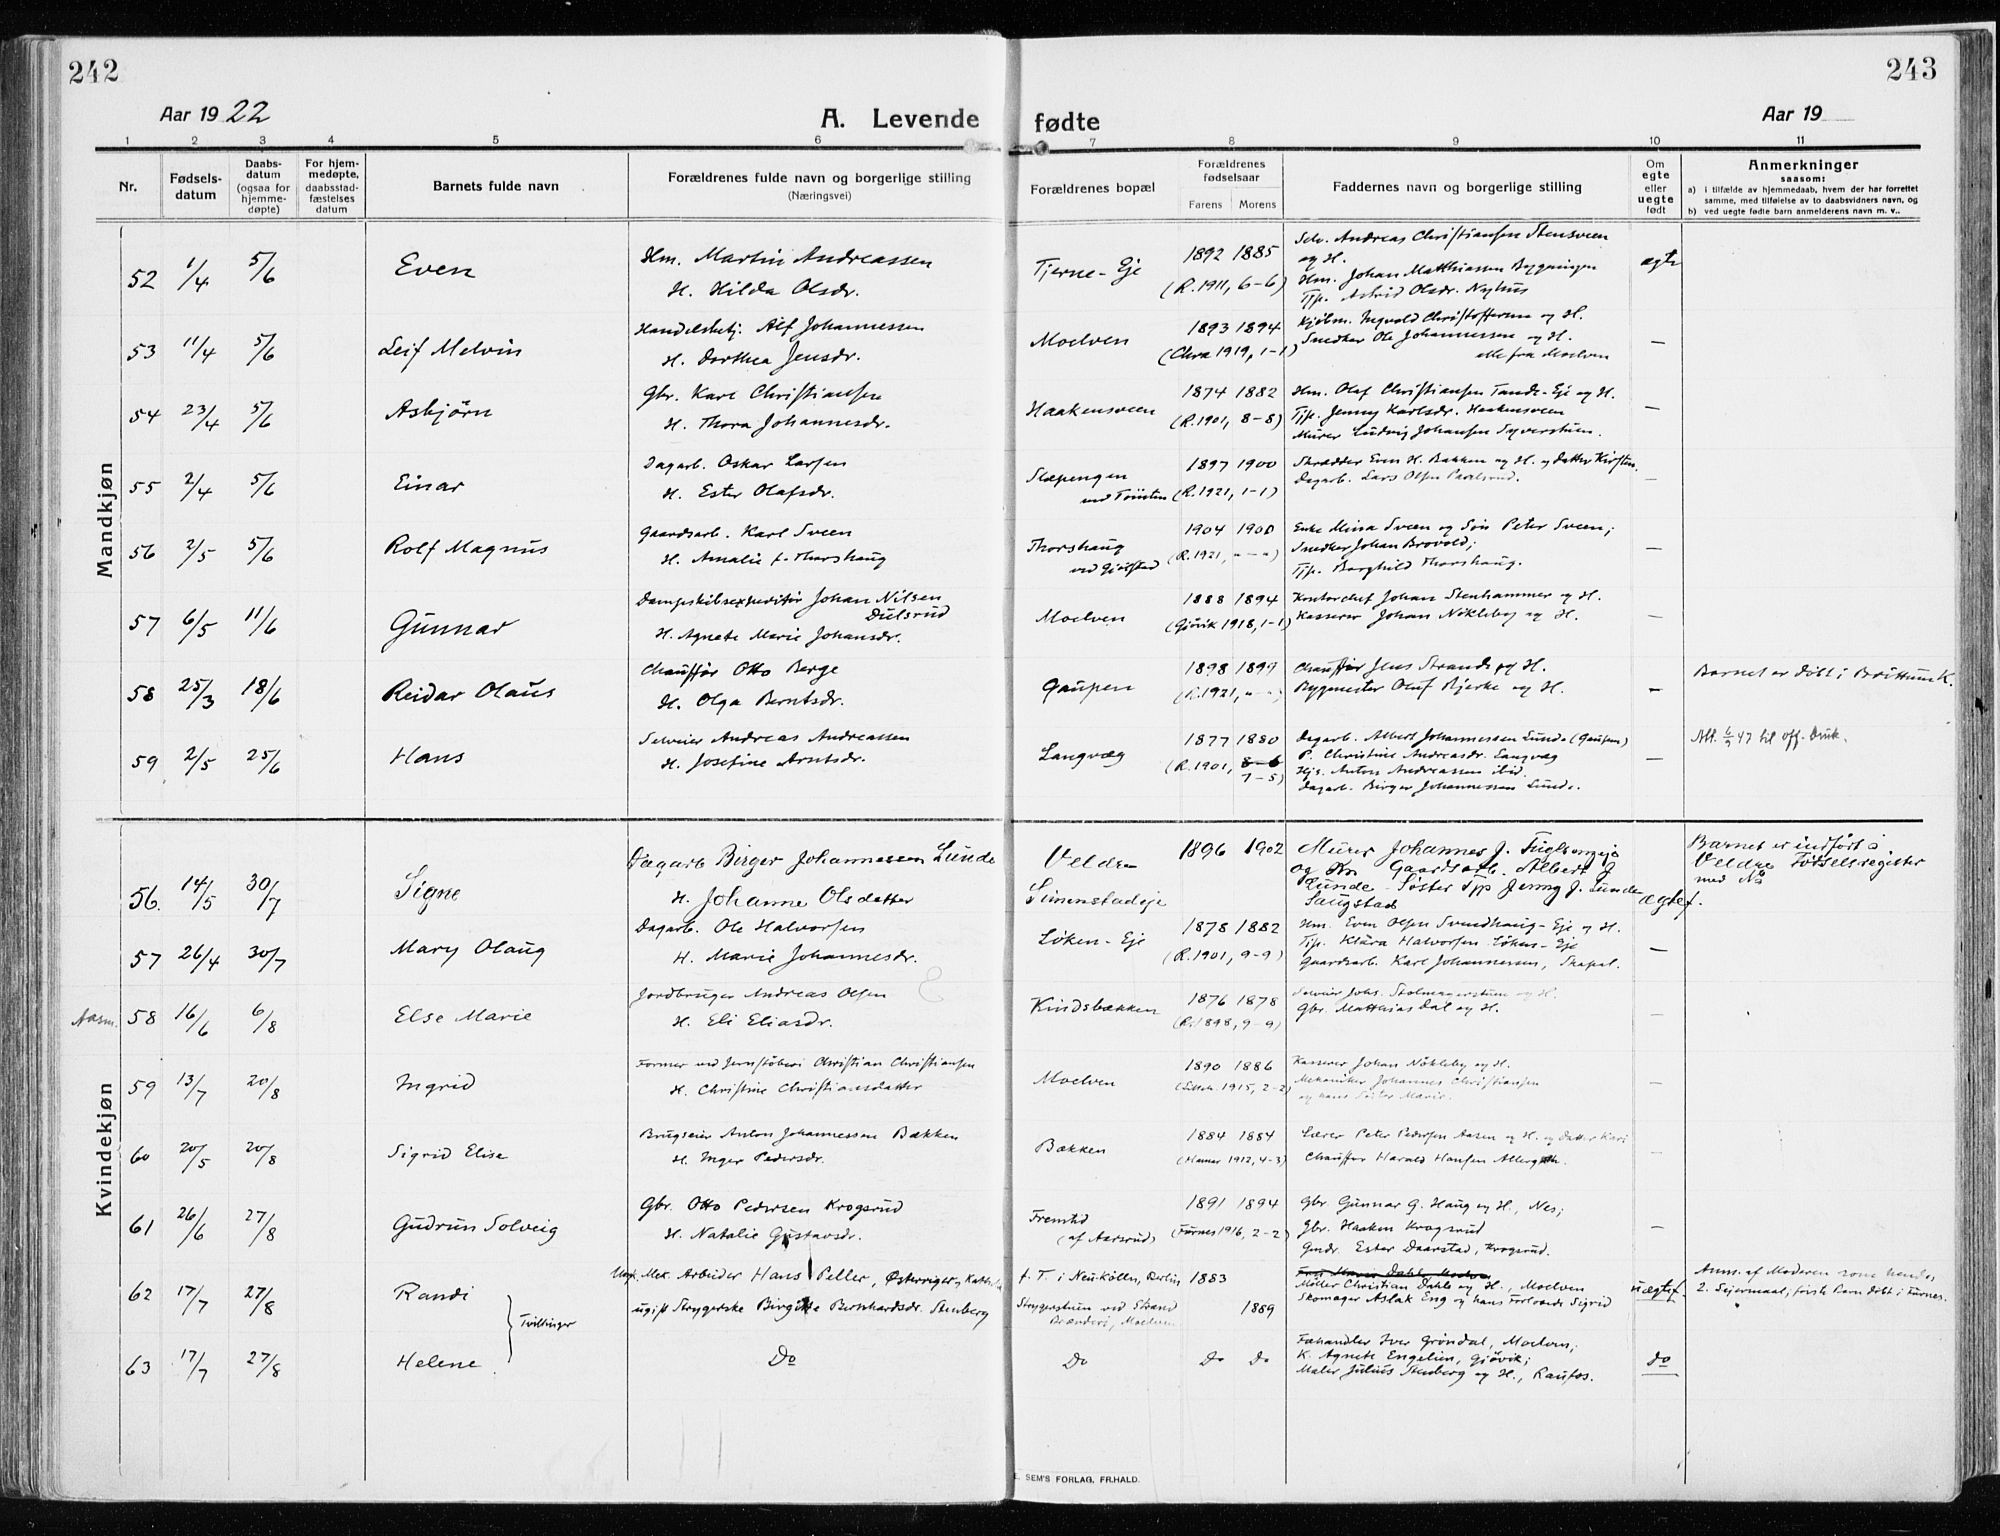 242
243
Aar 1922
A. Levende fødte
Aar 19
1 2 3 4 5 6 7 8 9 10 11
Nr.
Fødsels-
datum
Daabs-
datum
(ogsaa for
hjemme-
døpte)
For hjem-
medøpte,
daabsstad-
fæstelses
datum
Barnets fulde navn
Forældrenes fulde navn og borgerlige stilling
(Næringsvei)
Forældrenes bopæl
Forældrenes
fødselsaar
Farens Morens
Faddernes navn og borgerlige stilling
Om
egte
eller
uegte
født
Anmerkninger
saasom:
a) i tilfælde av hjemmedaab, hvem der har forrettet
samme, med tilføielse av to daabsvidners navn, og
b) ved uegte fødte barn anmelderens navn m. v..
Mandkjøn
52 1/4 5/6 Even
Hm. Martin Andreassen
H. Hilda Olsdr.
Tjerne-Eje
1892 1885
(R. 1911, 6-6)
Selv. Andreas Christiansen Stensveen
og H.
Hm. Johan Matthiassen Bygningen
Tjp. Astrid Olsdr. Nyhus
ægte
53 11/4 5/6 Leif Melvin
Handelsbetj. Alf Johannessen
H. Dorthea Jensdr.
Moelven
1893 1894
(Chra 1919, 1-1)
Kjølm. Ingvald Christoffersen og H.
Snedker Ole Johannessen og H.
alle fra Moelven
—
54 23/4 5/6 Asbjørn
Gbr. Karl Christiansen
H. Thora Johannesdr.
Haakensveen
1874 1882
(R. 1901, 8-8)
Hm. Olaf Christiansen Tande-Eje og H.
Tjp. Jenny Karlsdr. Haakensveen
Murer Ludvig Johansen Syverstuen.
—
55 2/4 5/6 Einar
Dagarb. Oskar Larsen
H. Ester Olafsdr.
Slæpengen
1897 1900
(R. 1921, 1-1)
Skrædder Even H. Bakken og H. og datter Kirsten.
Dagarb. Lars Olsen
—
56 2/5 5/6 Rolf Magnus
Gaardsarb. Karl Sveen
H. Amalie f. Thorshaug
Thorshaug
ved Gjørstad
1904 1900
(R. 1921, „-„)
Enke Mina Sveen og Søn Peter Sveen;
Snedker Johan Brovold;
Tjp. Borghild Thorshaug.
—
57 6/5 11/6 Gunnar
Dampskibsexpeditør Johan Nilsen
Dulsrud
H. Agnete Marie Johansdr.
Moelven
1888 1894
(Gjøvik 1918, 1-1)
Kontorchef Johan Stenhammer og H.
Kasserer Johan Nökleby og H.
—
58 25/3 18/6 Reidar Olaus
Chauffør Otto Berge
H. Olga Berntsdr.
Gaupen
1898 1899
(R. 1921, „-„)
Chauffør Jens Strande og H.
Bygmester Oluf Bjerke og H.
—
Barnet er døbt i Brøttum K.
59 2/5 25/6 Hans
Selveier Andreas Andreassen
H. Josefine Arntsdr.
Langvæg
1877 1880
(R. 1901, 8-6
7-5)
Dagarb. Albert Johannessen Lunde (Gaupen)
P. Christine Andreasdr. Langvæg
Hjs. Anton Andreassen ibid.
Dagarb. Birger Johannessen Lunde.
—
Att. 6/9 47 til off. bruk.
Kvindekjøn
56. 14/5 30/7 Signe
Dagarb Birger Johannessen Lunde
H. Johanne Olsdatter
Veldre
Simenstadeje
1896 1902
Murer Johannes J. Fuglsengeje
og Kn Gaardsarb. Albert J
Lunde - Søster Tjp Jenny J. Lunde
Saugstad
ægtef.
Barnet er indført i
Veldre Fötselsregister
med No
57 26/4 30/7 Mary Olaug
Dagarb. Ole Halvorsen
H. Marie Johannesdr.
Løken-Eje
1878 1882
(R. 1901, 9-9)
Hm. Even Olsen Svendhaug-Eje og H.
Tjp. Klara Halvorsen Løken-Eje
Gaardsarb. Karl Johannessen, Skapal.
—
Aasm. 58 16/6 6/8 Else Marie
Jordbruger Andreas Olsen
H. Eli Eliasdr.
Kindsbækken
1876 1878
(R. 1898, 9-9)
Selveier Johs. Stolmagerstuen og H.
Gbr. Matthias Dal og H.
—
59 13/7 20/8 Ingrid
Former ved Jernstøberi Christian Christiansen
H. Christine Christiansdatter
Moelven
1890 1886
(Lilleh. 1915, 2-2)
Kasserer Johan Nökleby og H.
Mekaniker Johannes Christiansen
og hans Søster Marie.
—
60 20/5 20/8 Sigrid Elise
Brugseier Anton Johannessen Bækken
H. Inger Pedersdr.
Bækken
1884 1884
(Hamar 1912, 4-3)
Lærer Peter Pedersen Aasen og H. og datter Kari
Chauffør Harald Hansen
—
61 26/6 27/8 Gudrun Solveig
Gbr. Otto Pedersen Krogsrud
H. Natalie Gustavsdr.
Fremtid
(af Aarsrud)
1891 1894
(Furnes 1916, 2-2)
Gbr. Gunnar G. Haug og H., Nes;
Gbr. Haaken Krogsrud
Gmdr. Ester Daarstad, Krogsrud.
—
62 17/7 27/8 Randi
Ugf. Mek. Arbeider Hans Peller, Østerriger,
ugift Strygerske Birgitte Bernhardsdr. Stenberg
f. T. i Neu-Kölln, Berlin
Strygerstuen ved Strand
Brænderi, Moelven
1883
1889
Frøk. Marie Dahl, Moelven
Møller Christian Dahl og H., Moelven
Skomager Aslak Eng og hans Forlovede Sigrid
uægtef.
Anm. af Moderen som hendes
2. Leiermaal, første Barn døbt i Furnes.
Tvillinger
63 17/7 27/8 Helene
Do
Do
Do Do
Fæhandler Iver Gröndal, Moelven;
K. Agnete Engelien, Gjøvik;
Maler Julius Stenberg og H., Raufos.
Do
E. SEM'S FORLAG, FR.HALD.